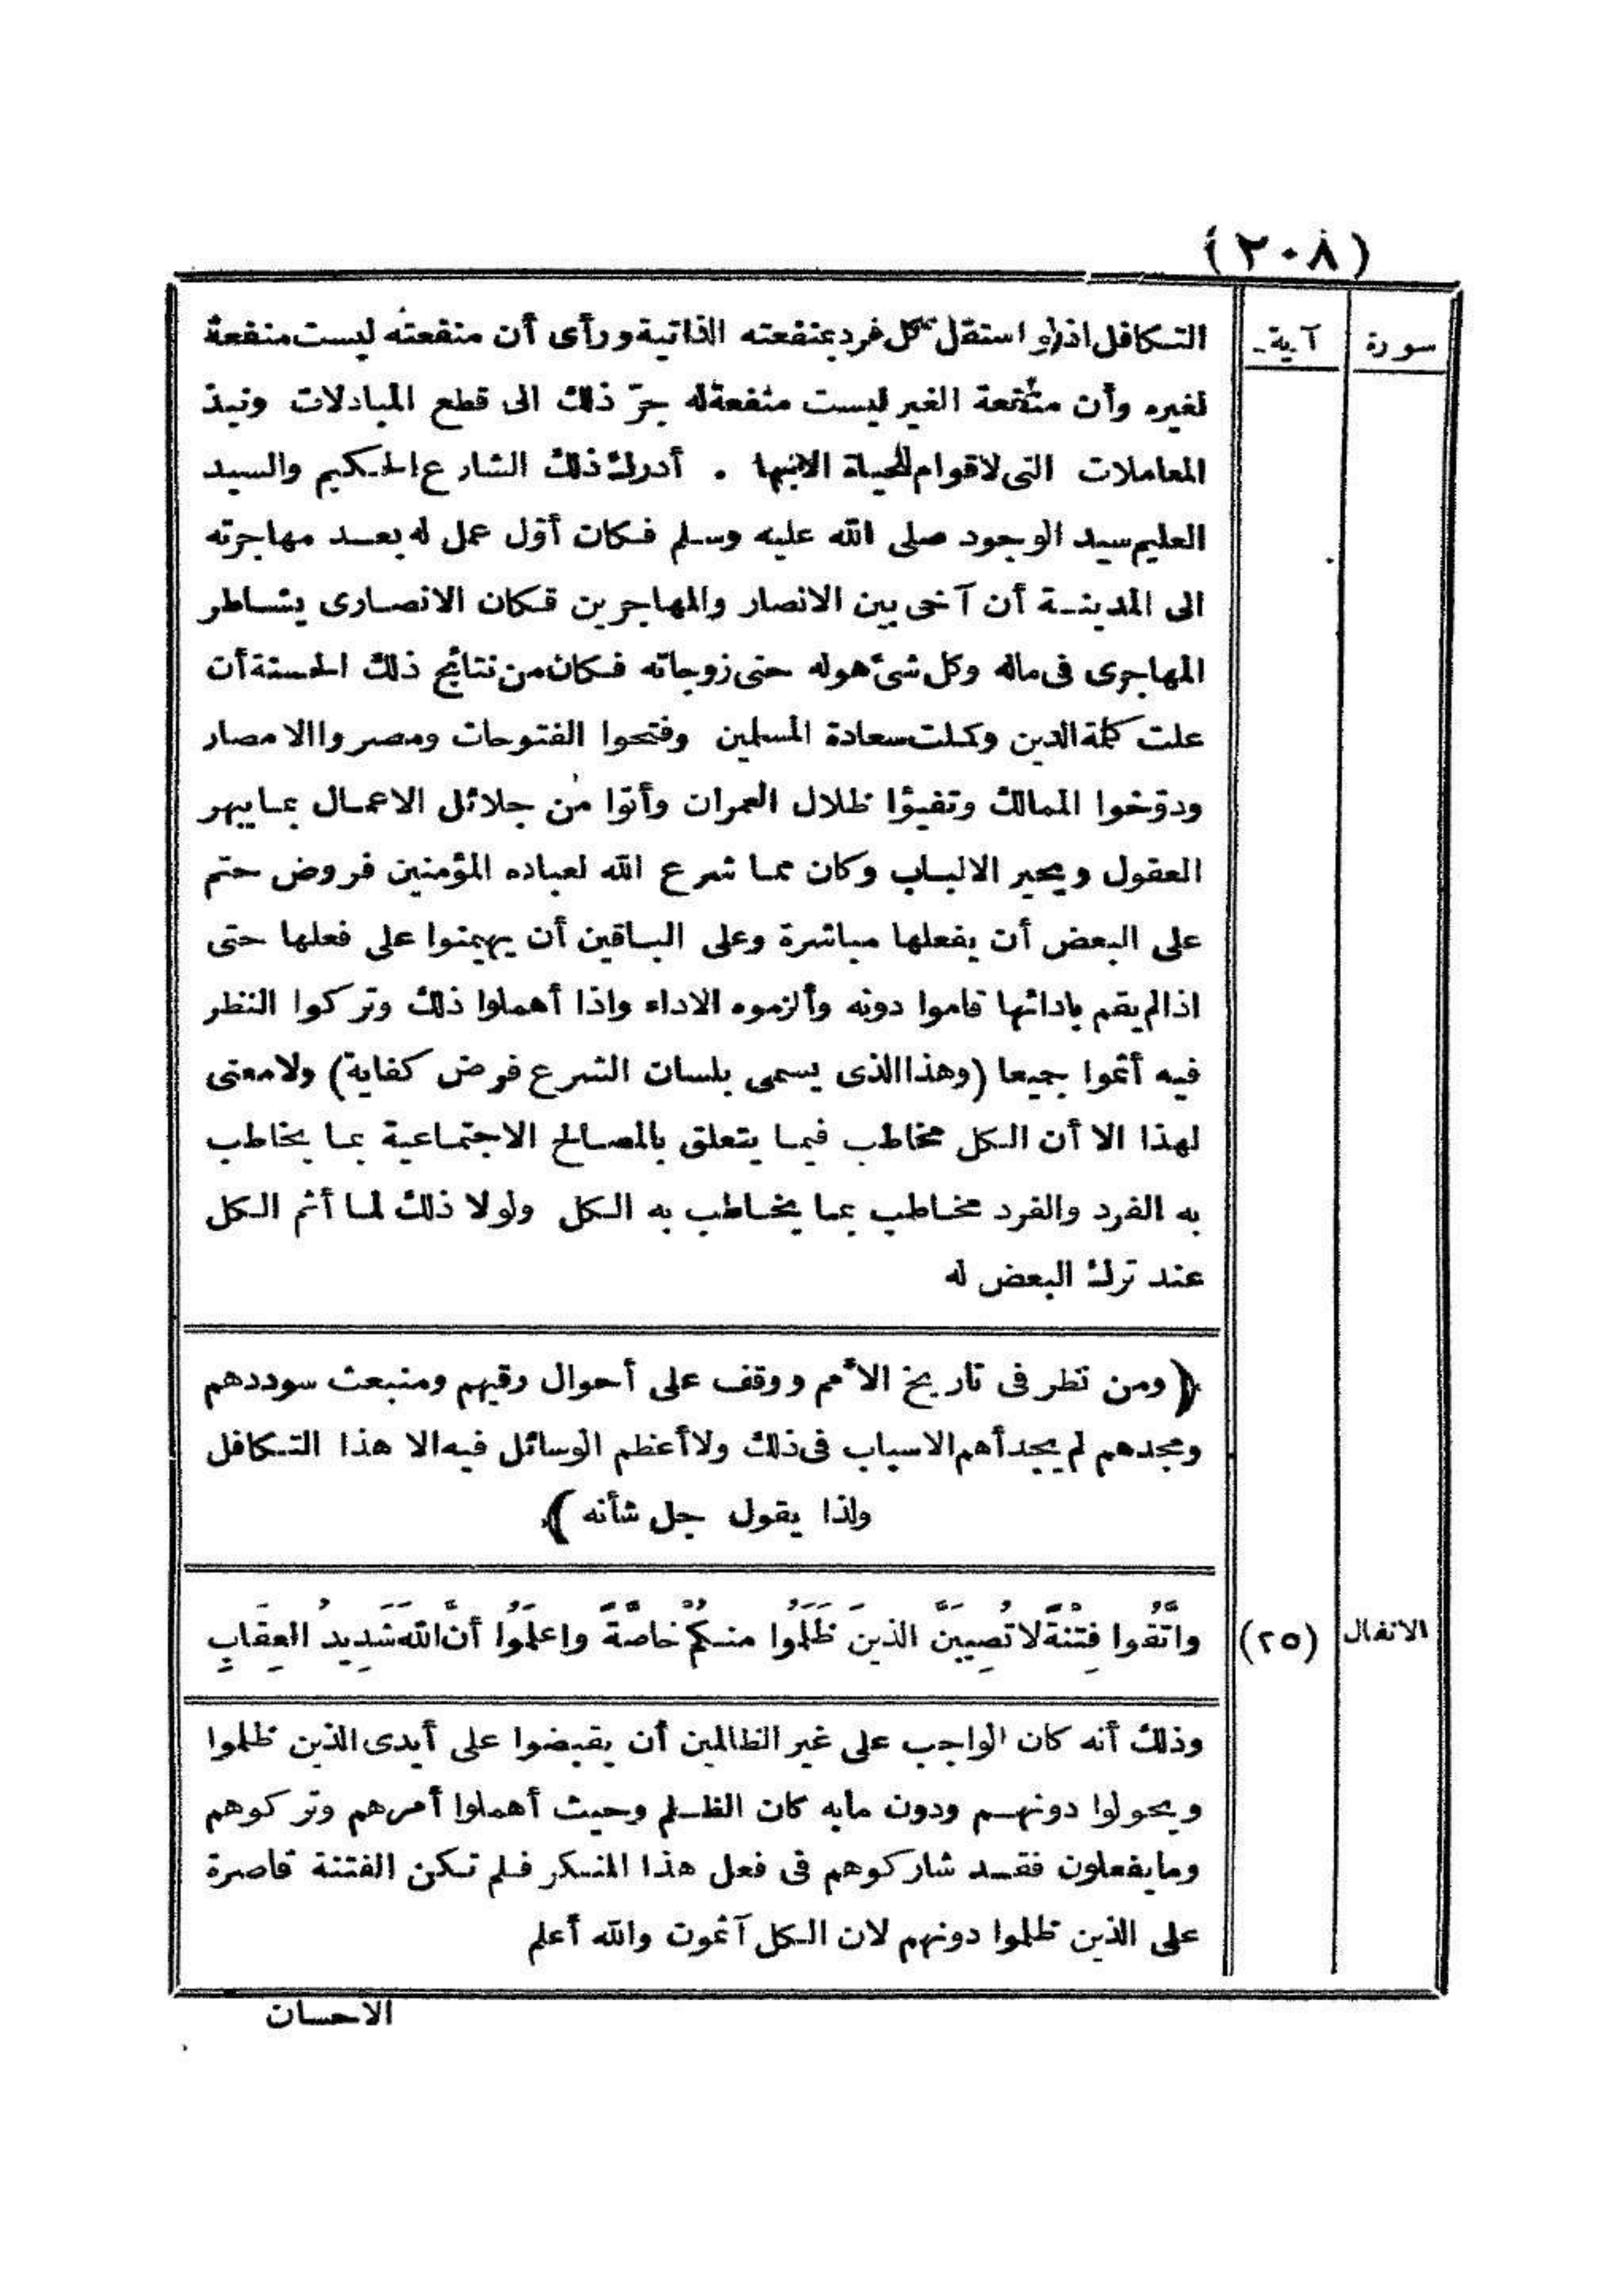 (٢٠٨)
سورة آية
التكافل اذلو استقل كل فرد بمنفعته الذاتية ورأى أن منفعته ليست منفعة
لغيره وأن منفعة الغير ليست منفعة له جرّ ذلك الى قطع المبادلات ونبذ
المعاملات التى لاقوام للحياة الابها . أدرك ذلك الشارع الحكيم والسيد
العليم سيد الوجود صلى الله عليه وسلم فكان أوّل عمل له بعد مهاجرته
الى المدينة أن آخى بين الانصار والمهاجرين فكان الانصارى يشاطر
المهاجرى فى ماله وكل شئ هوله حتى زوجاته فكان من نتائج ذلك الحسنة أن
علت كلمة الدين وكملت سعادة المسلمين وفتحوا الفتوحات ومصروا الامصار
ودوّخوا الممالك وتفيؤا ظلال العمران وأتوا من جلائل الاعمال بما يبهر
العقول ويحير الالباب وكان مما شرع الله لعباده المؤمنين فروض حتم
على البعض أن يفعلها مباشرة وعلى الباقين أن يهيمنوا على فعلها حتى
اذالم يقم بادائها قاموا دونه وألزموه الاداء واذا أهملوا ذلك وتركوا النظر
فيه أثموا جميعا (وهذا الذى يسمى بلسان الشرع فرض كفاية) ولا معنى
لهذا الا أن الكل مخاطب فيما يتعلق بالمصالح الاجتماعية بما يخاطب
به الفرد والفرد مخاطب بما يخاطب به الكل ولولا ذلك لما أثم الكل
عند ترك البعض له
(ومن نظر فى تاريخ الأمم ووقف على أحوال رقيهم ومنبعث سوددهم
ومجدهم لم يجد أهم الاسباب فى ذلك ولا أعظم الوسائل فيه الا هذا التكافل
ولذا يقول جل شأنه)
الانفال (٢٥) واتَّقُوا فِتْنَةً لا تُصِيبَنَّ الذينَ ظَلَمُوا منكُمْ خاصَّةً واعلَمُوا أنَّ اللهَ شَدِيدُ العِقَابِ
وذلك أنه كان الواجب على غير الظالمين أن يقبضوا على أيدى الذين ظلموا
ويحولوا دونهم ودون مابه كان الظلم وحيث أهملوا أمرهم وتركوهم
وما يفعلون فقد شاركوهم فى فعل هذا المنكر فلم تكن الفتنة قاصرة
على الذين ظلموا دونهم لان الكل آثمون والله أعلم
الاحسان